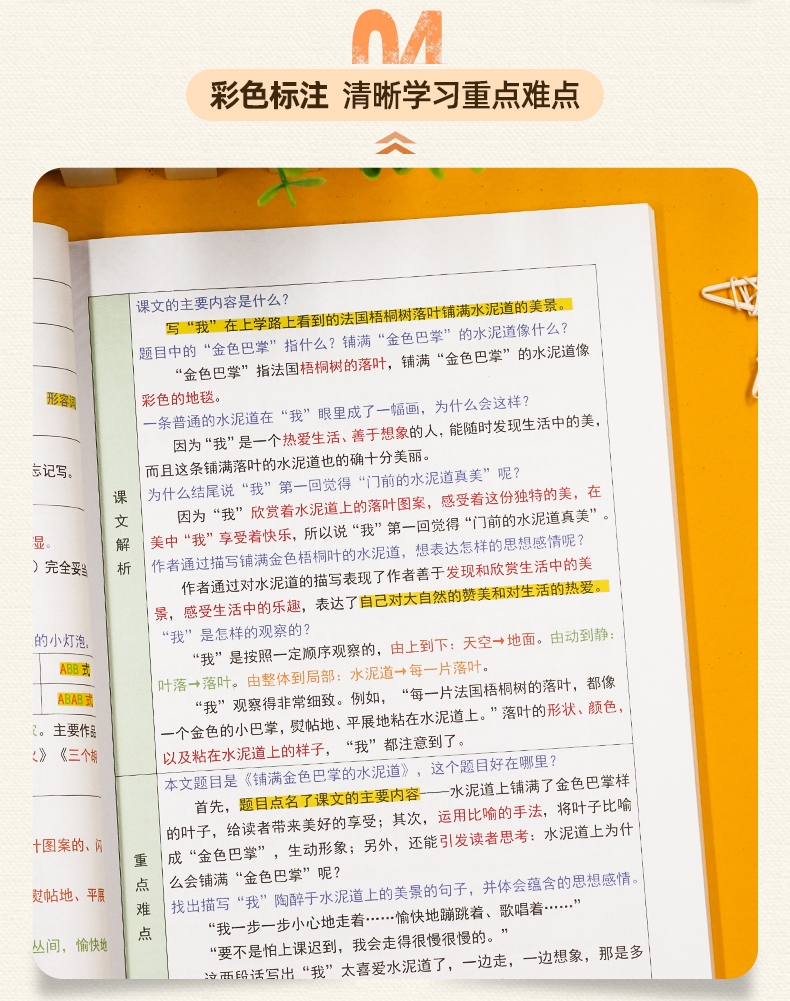 04
彩色标注 清晰学习重点难点
形容词
忘记写。
湿。
）完全妥当
的小灯泡。
ABB 式
ABAB 式
。主要作品
》《三个胡
叶图案的、闪
熨帖地、平展
丛间，愉快地
课文解析
课文的主要内容是什么？
写“我”在上学路上看到的法国梧桐树落叶铺满水泥道的美景。
题目中的“金色巴掌”指什么？铺满“金色巴掌”的水泥道像什么？
“金色巴掌”指法国梧桐树的落叶，铺满“金色巴掌”的水泥道像
彩色的地毯。
一条普通的水泥道在“我”眼里成了一幅画，为什么会这样？
因为“我”是一个热爱生活、善于想象的人，能随时发现生活中的美，
而且这条铺满落叶的水泥道也的确十分美丽。
为什么结尾说“我”第一回觉得“门前的水泥道真美”呢？
因为“我”欣赏着水泥道上的落叶图案，感受着这份独特的美，在
美中“我”享受着快乐，所以说“我”第一回觉得“门前的水泥道真美”。
作者通过描写铺满金色梧桐叶的水泥道，想表达怎样的思想感情呢？
作者通过对水泥道的描写表现了作者善于发现和欣赏生活中的美
景，感受生活中的乐趣，表达了自己对大自然的赞美和对生活的热爱。
“我”是怎样的观察的？
“我”是按照一定顺序观察的，由上到下：天空→地面。由动到静：
叶落→落叶。由整体到局部：水泥道→每一片落叶。
“我”观察得非常细致。例如，“每一片法国梧桐树的落叶，都像
一个金色的小巴掌，熨帖地、平展地粘在水泥道上。”落叶的形状、颜色，
以及粘在水泥道上的样子，“我”都注意到了。
重点难点
本文题目是《铺满金色巴掌的水泥道》，这个题目好在哪里？
首先，题目点名了课文的主要内容——水泥道上铺满了金色巴掌样
的叶子，给读者带来美好的享受；其次，运用比喻的手法，将叶子比喻
成“金色巴掌”，生动形象；另外，还能引发读者思考：水泥道上为什
么会铺满“金色巴掌”呢？
找出描写“我”陶醉于水泥道上的美景的句子，并体会蕴含的思想感情。
“我一步一步小心地走着……愉快地蹦跳着、歌唱着……”
“要不是怕上课迟到，我会走得很慢很慢的。”
这两段话写出“我”太喜爱水泥道了，一边走，一边想象，那是多